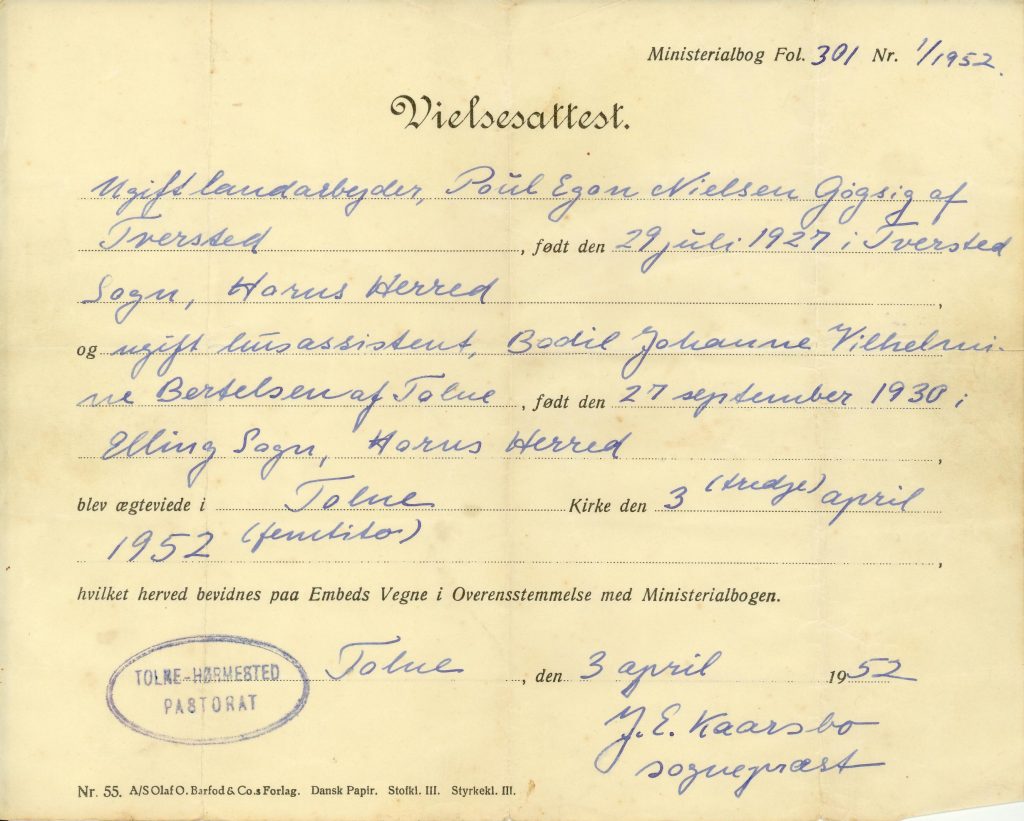 Ministerialbog Fol. 301 Nr. 1/1952.
Vielsesattest.
Ugift landarbejder, Poul Egon Nielsen Gøgsig af
Tversted, født den 29 juli 1927 i Tversted
Sogn, Horns Herred,
og ugift husassistent, Bodil Johanne Vilhelmi-
ne Bertelsen af Tolne, født den 27 september 1930 i
Elling Sogn, Horns Herred,
blev ægteviede i Tolne Kirke den 3 (tredje) april
1952 (femtito),
hvilket herved bevidnes paa Embeds Vegne i Overensstemmelse med Ministerialbogen.
TOLNE-HØRMESTED
PASTORAT
Tolne, den 3 april 1952
J. E. Kaarsbo
sognepræst
Nr. 55. A/S Olaf O. Barfod & Co.s Forlag. Dansk Papir. Stofkl. III. Styrkekl. III.